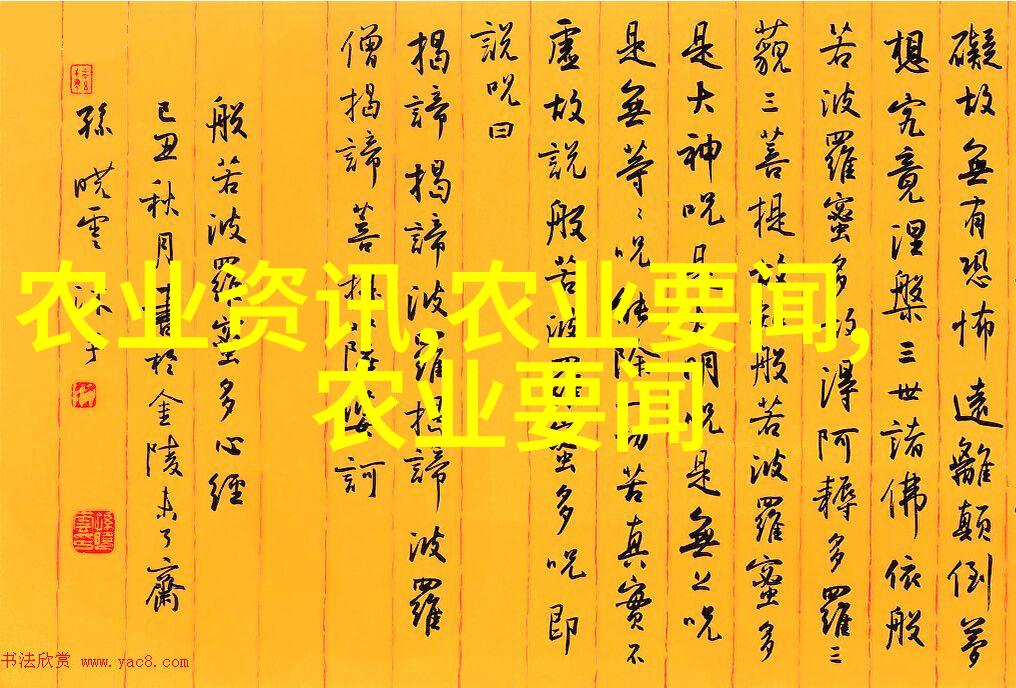 礙故無有恐怖遠離顛倒夢
想究竟涅槃三世諸佛依般
若波羅蜜多故得阿耨多羅三
藐三菩提故知般若波羅蜜多
是大神咒是大明咒是無上咒
是無等〻咒能除一切苦真實不
虛故說般若波羅蜜多咒即
說咒曰
揭諦揭諦波羅揭諦波羅
僧揭諦菩提薩婆訶
般若波羅蜜多心經
己丑秋月書於金陵未了齋
孫曉雲沐手
农业资讯,农业要闻,
农业要闻
书法欣赏 www.yac8.com